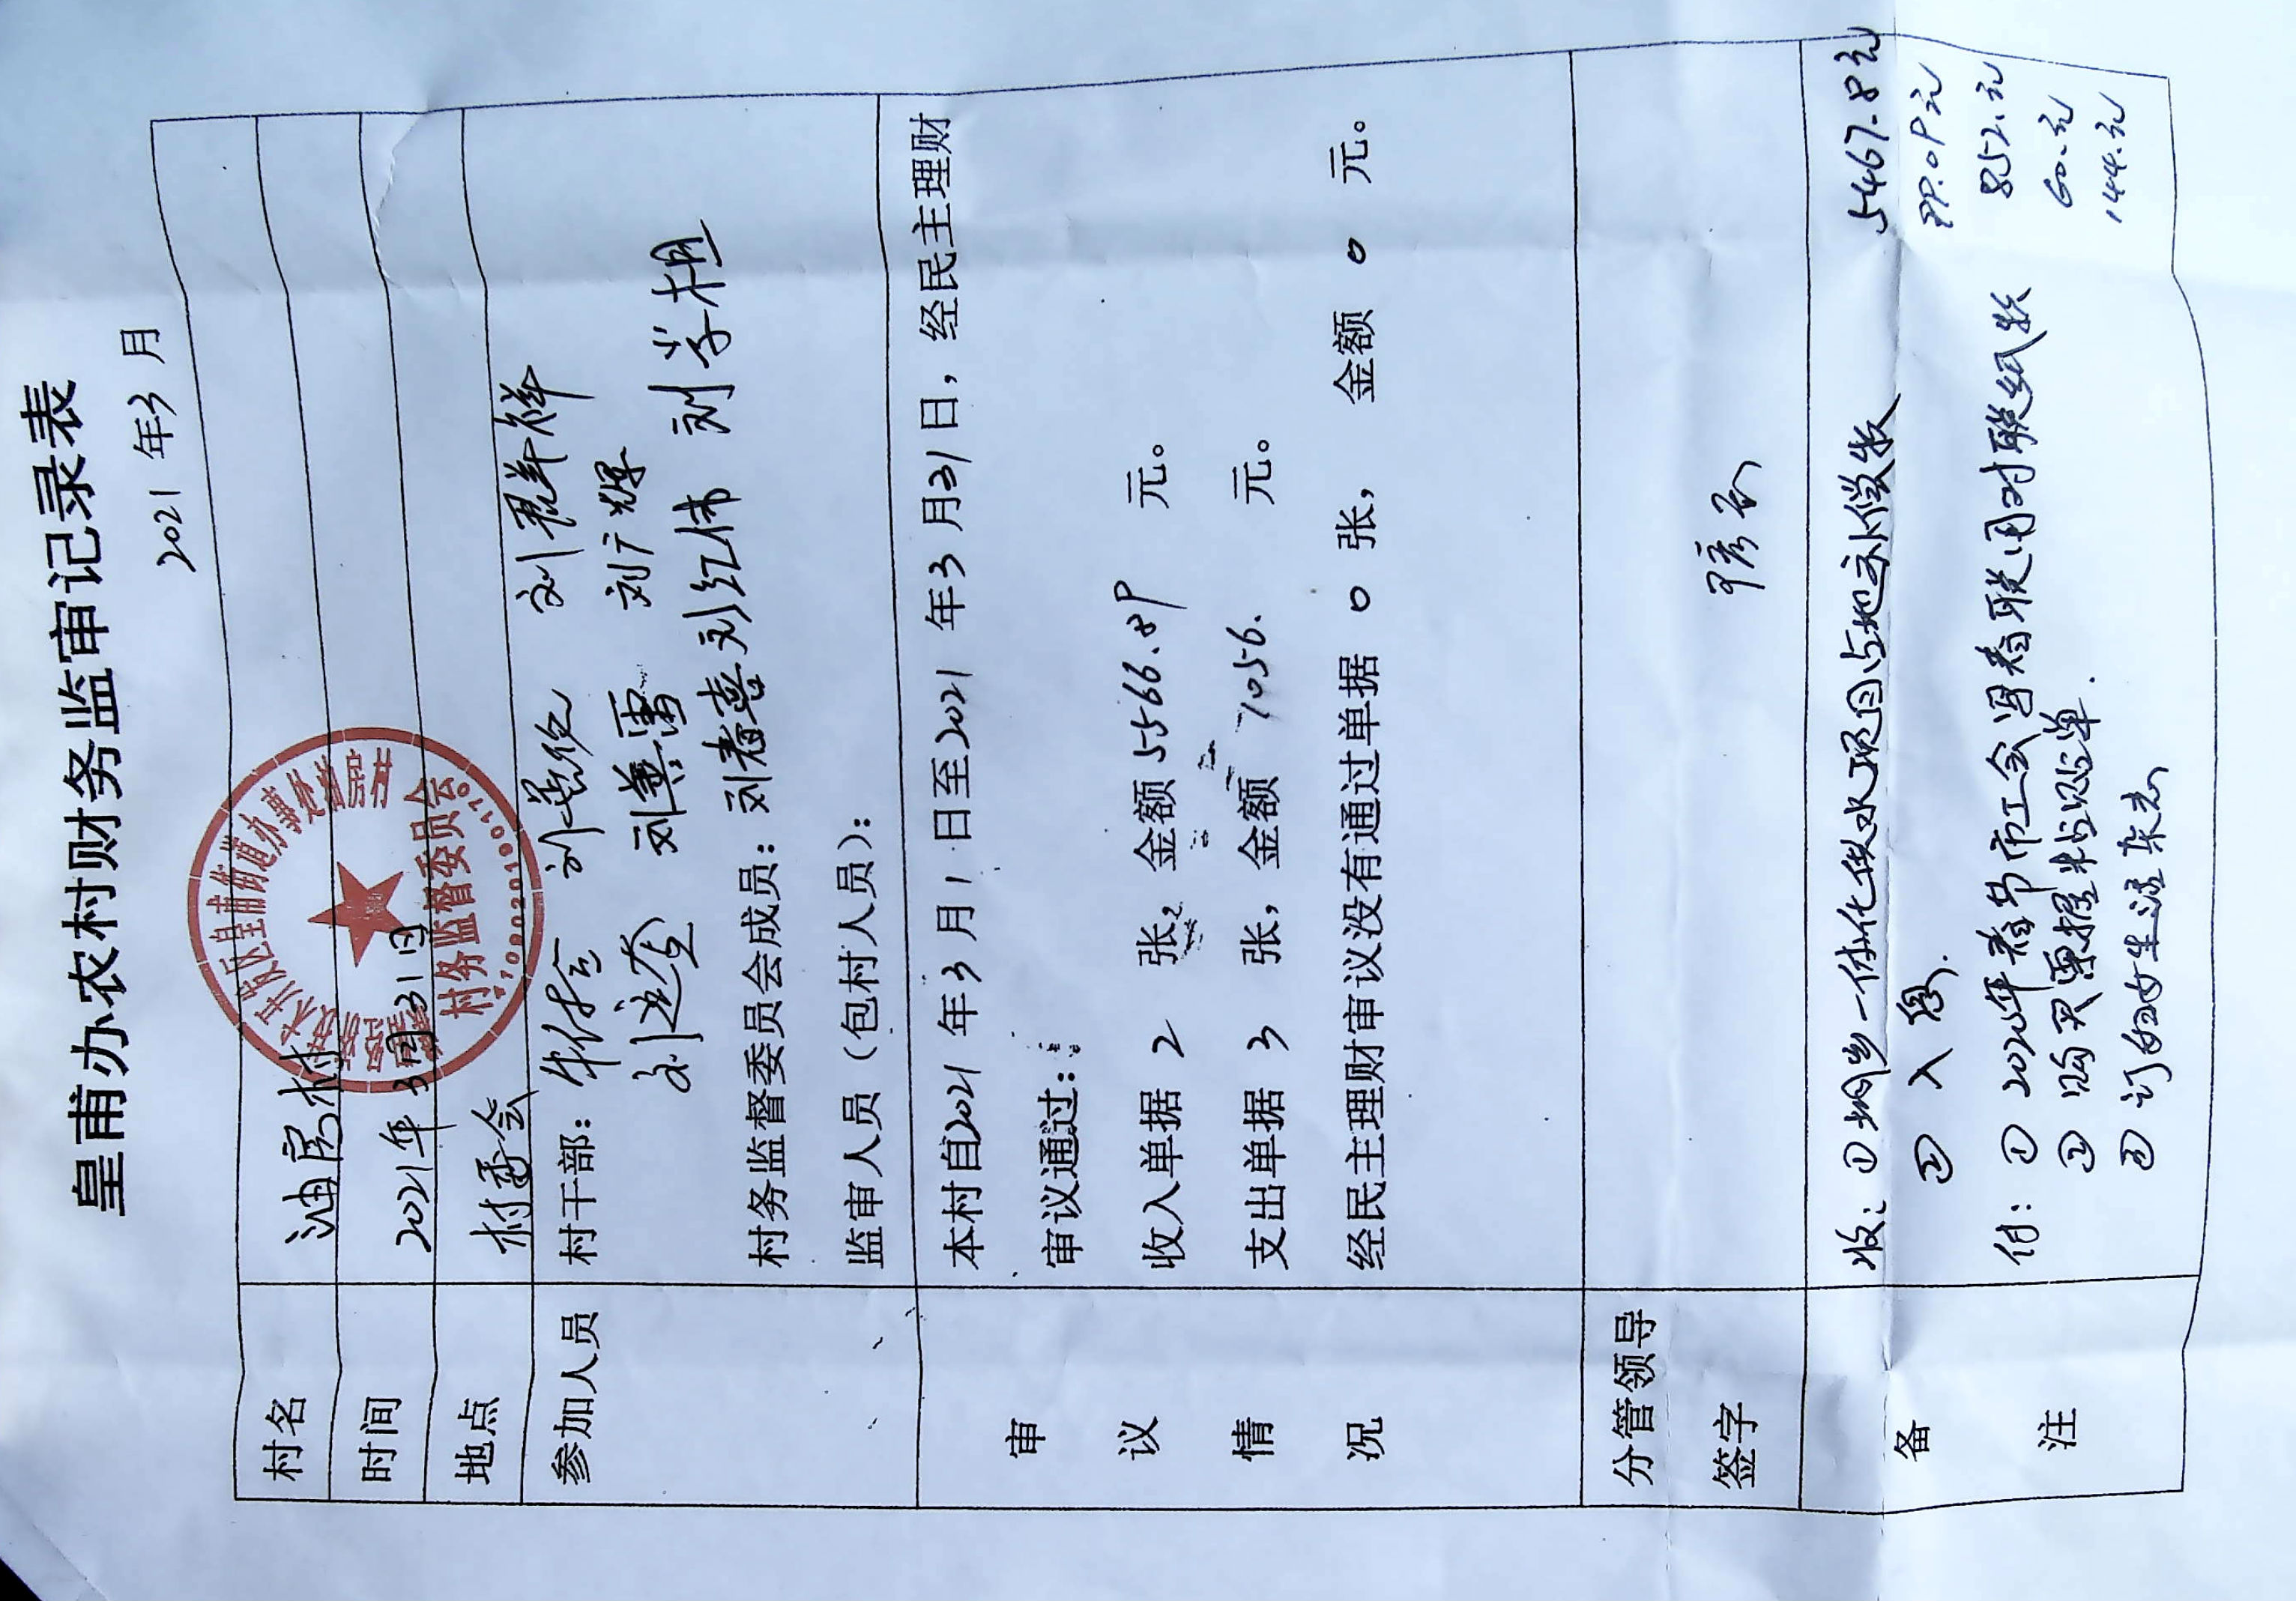 皇甫办农村财务监审记录表
2021年3月
村名 油房村
时间 2021年3月31日
地点 村委会
参加人员 村干部：刘群祥
刘广辉
村务监督委员会成员：刘春喜 刘红伟 刘学相
监审人员（包村人员）：
审议情况
本村自2021年3月1日至2021年3月31日，经民主理财
审议通过：
收入单据 2 张，金额 5566.89 元。
支出单据 3 张，金额 1056. 元。
经民主理财审议没有通过单据 0 张， 金额 0 元。
分管领导签字
备注
收：①城乡一体化供水项目占地补偿款 5467.8元
② 入息. 99.09元
付：① 2020年春节市工会写春联用对联纸款 852.元
② 购买 60.元
③ 订妇女生活杂志 144.元
村务监督委员会